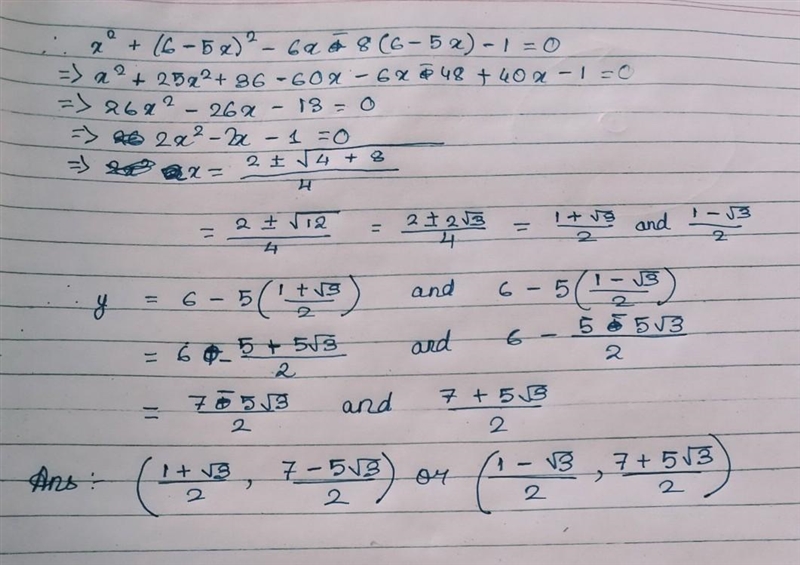 ∴ x² + (6 - 5x)² - 6x - 8(6 - 5x) - 1 = 0
=> x² + 25x² + 36 - 60x - 6x - 48 + 40x - 1 = 0
=> 26x² - 26x - 13 = 0
=> 2x² - 2x - 1 = 0
=> x = (2 ± √4 + 8)/4
= (2 ± √12)/4 = (2 ± 2√3)/4 = (1 + √3)/2 and (1 - √3)/2
∴ y = 6 - 5((1 + √3)/2) and 6 - 5((1 - √3)/2)
= 6 - (5 + 5√3)/2 and 6 - (5 - 5√3)/2
= (7 - 5√3)/2 and (7 + 5√3)/2
Ans :- ((1 + √3)/2, (7 - 5√3)/2) or ((1 - √3)/2, (7 + 5√3)/2)